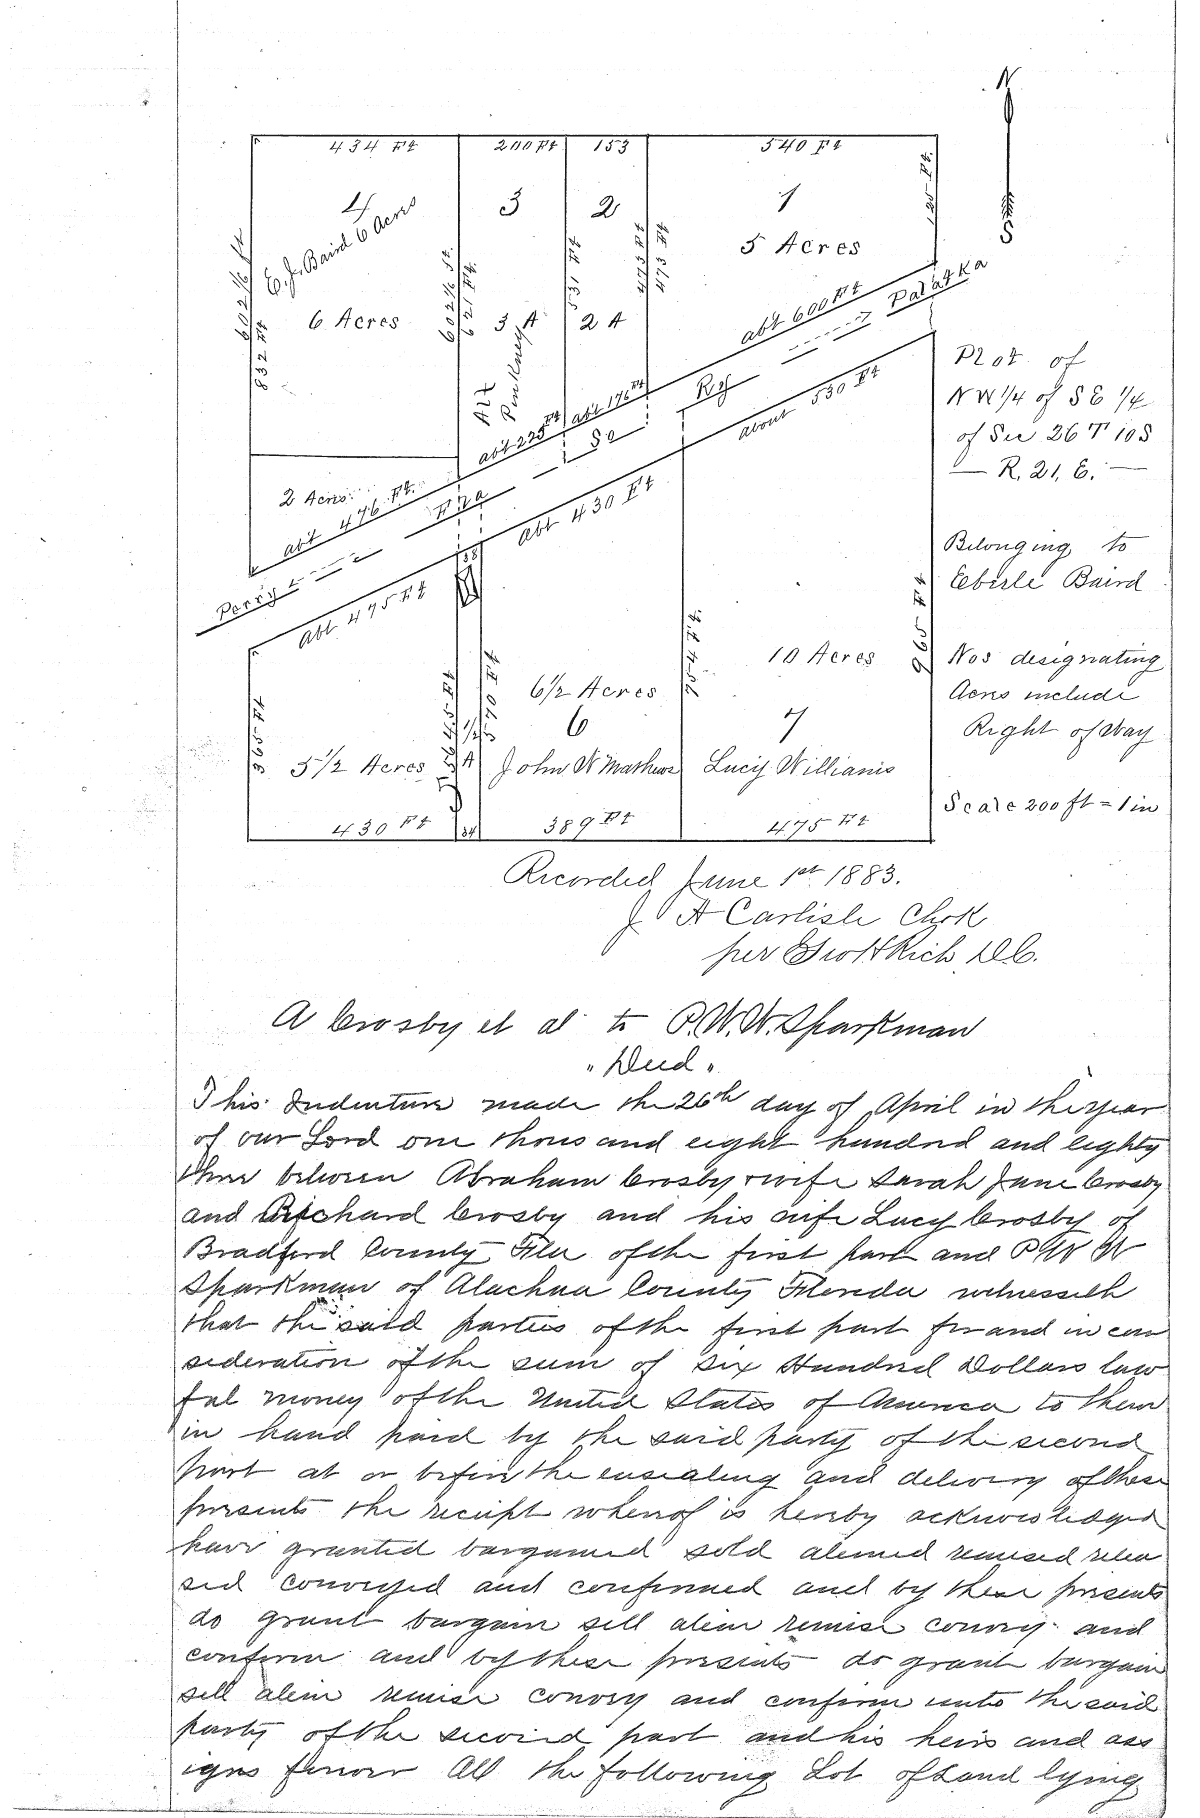 N
434 Ft 200 Ft 153 540 Ft
4 3 2 1
E. J. Baird 6 Acres
5 Acres
6 Acres 3 A 2 A
602 1/6 ft
832 Ft
602 1/6 ft
621 Ft
S
Alt
Pinkney
abt 600 Ft
Palatka
abt 225 Ft abt 176 Ft
Ry
So
about 530 Ft
2 Acres
abt 476 Ft.
Fla
Abt 430 Ft
Perry
Abt 475 Ft
Plot of
NW 1/4 of SE 1/4
of Sec 26 T 10S
R. 21. E.
Belonging to
Eeberle Baird
Nos designating
Acres include
Right of Way
Scale 200 ft = 1 in
965 Ft
365 Ft
10 Acres
6 1/2 Acres
6 7
5 1/2 Acres John W Mathews Lucy Willianis
430 Ft 34 389 Ft 475 Ft
Recorded June 1st 1883.
J A Carlisle Clerk
per Geo H Rich D.C.
A Crosby et al to P. W. W. Sparkman
"Deed"
This Indenture made the 26th day of April in the year
of our Lord one thousand eight hundred and eighty
three between Abraham Crosby & wife Sarah Jane Crosby
and Richard Crosby and his wife Lucy Crosby of
Bradford County Fla of the first part and P W W
Sparkman of Alachua County Florida witnesseth
that the said parties of the first part for and in con
sideration of the sum of Six Hundred Dollars law
ful money of the United States of America to them
in hand paid by the said party of the second
part at or before the ensealing and delivery of these
presents the receipt whereof is hereby acknowledged
have granted bargained sold aliened remised relea
sed conveyed and confirmed and by these presents
do grant bargain sell alien remise convey and
confirm and by these presents do grant bargain
sell alien remise convey and confirm unto the said
party of the second part and his heirs and ass
igns forever All the following Lot of Land lying